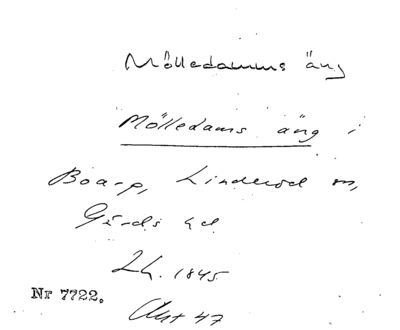 Mölledamms äng
Mölledams äng i
Boarp, Linderöd sn,
Gärds hd
Lh. 1845
Nr 7722.
Akt 47